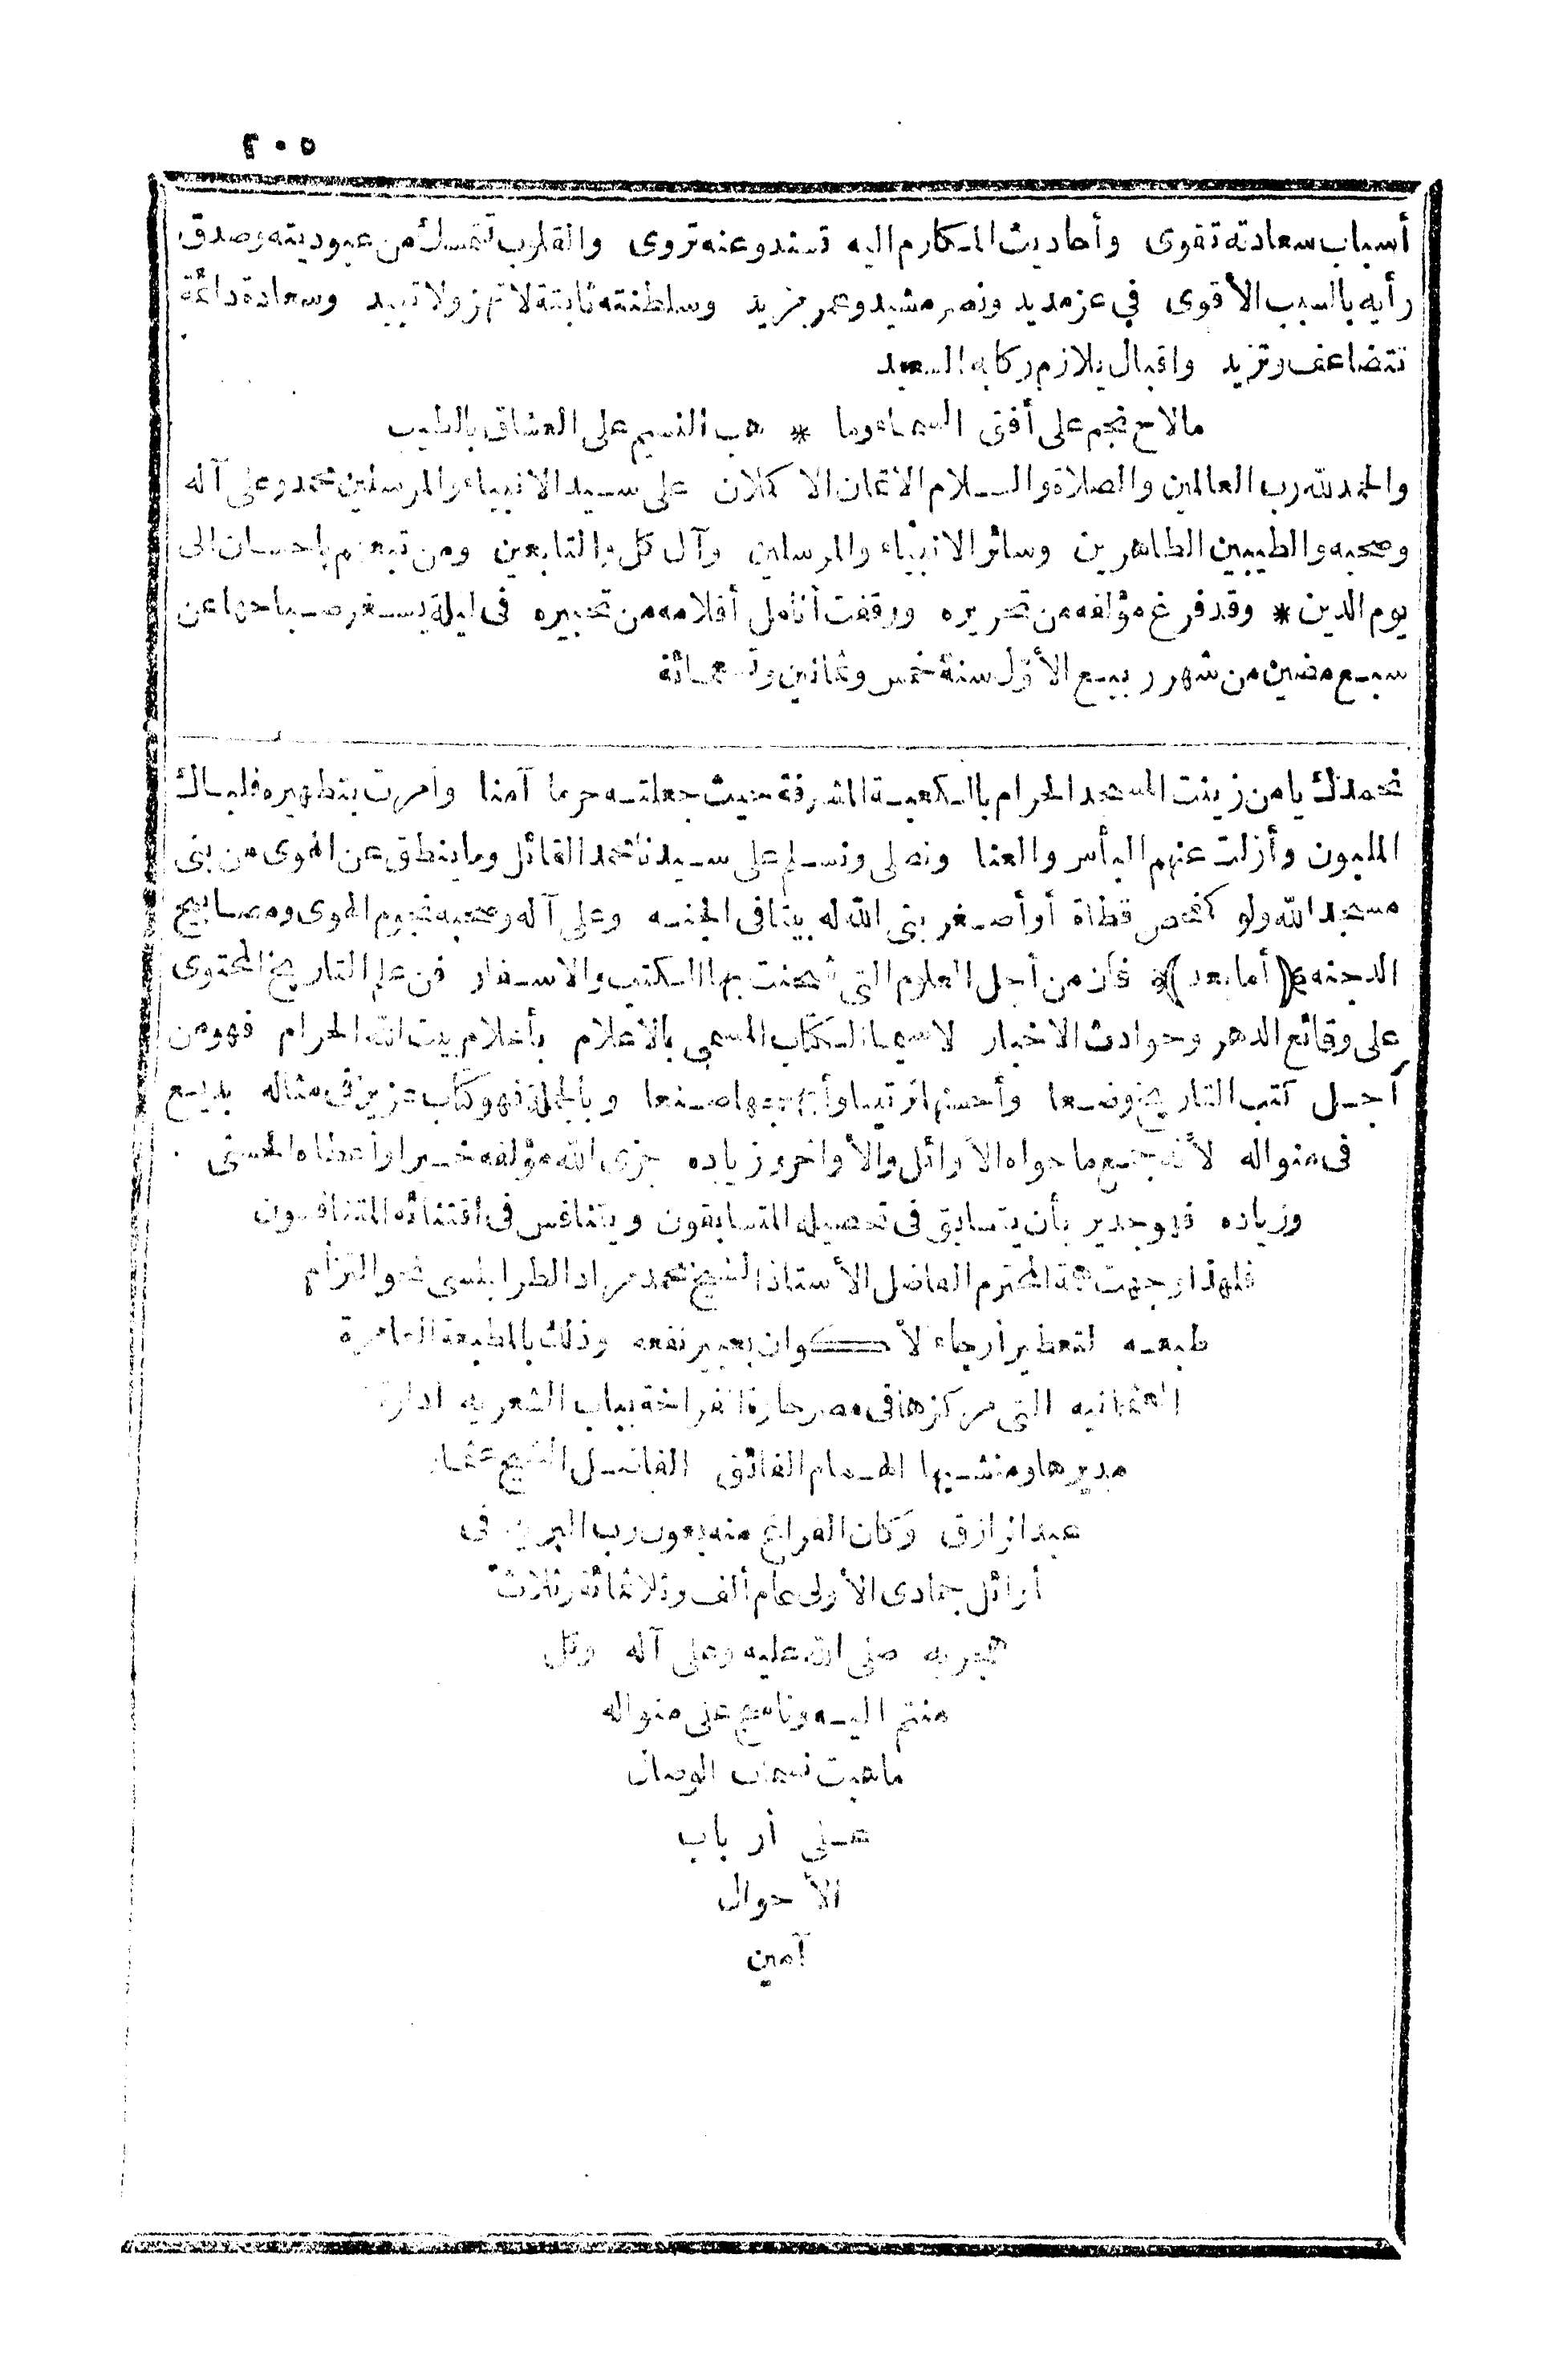 أسباب سعادته تقوى وأحاديث المكارم اليه تسند وعنه تروى والقلوب تتمسك من عبوديته وصدق
رأيه بالسبب الأقوى في عز مديد ونصر مشيد وعمر مزيد وسلطنته ثابتة لا تهز ولا تبيد وسعادة دائمة
تتضاعف وتزيد واقبال يلازم ركابه السعيد
مالاح نجم على أفق السماء وما * هب النسيم على العشاق بالطيب
والحمد لله رب العالمين والصلاة والسلام الأتمان الاكملان على سيد الانبياء والمرسلين محمد وعلى آله
وصحبه والطيبين الطاهرين وسائر الانبياء والمرسلين وآل كل والتابعين ومن تبعهم باحسان الى
يوم الدين * وقد فرغ مؤلفه من تحريره ووقفت أنامل أقلامه من تحبيره فى ليلة يسفر صباحها عن
سبع مضين من شهر ربيع الأول سنة خمس وثمانين وتسعمائة
نحمدك يا من زينت المسجد الحرام بالكعبة المشرفة حيث جعلته حرما آمنا وأمرت بتطهيره فلباك
الملبون وأزلت عنهم البأس والعنا ونصلى ونسلم على سيدنا محمد القائل وما ينطق عن الهوى من بنى
مسجد الله ولو كفحص قطاة أو أصغر بنى الله له بيتا فى الجنه وعلى آله وصحبه نجوم الهوى ومصابيح
الدجنه (أما بعد) فان من أجل العلوم التى شحنت بها الكتب والاسفار فن علم التاريخ المحتوى
على وقائع الدهر وحوادث الاخبار لاسيما الكتاب المسمى بالاعلام بأعلام بيت الله الحرام فهو من
أجل كتب التاريخ وضعا وأحسنها ترتيبا وأبهجها صنعا وبالجملة فهو كتاب عزيز فى مثاله بديع
فى منواله لأنه جمع ما حواه الأوائل والأواخر وزياده جزى الله مؤلفه خيرا وأعطاه الحسنى
وزياده فهو جدير بأن يتسابق فى تحصيله المتسابقون ويتنافس فى اقتنائه المتنافسون
فلهذا وجهت همة المحترم الفاضل الأستاذ الشيخ محمد مراد الطرابلسى نحو التزام
طبعه لتعطير أرجاء الأكوان بعبير نفعه وذلك بالمطبعة العامرة
العثمانيه التى مركزها فى مصر حارة الفراخة بباب الشعريه ادارة
مديرها ومنشيها الهمام الفائق الفاضل الشيخ عثمان
عبد الرازق وكان الفراغ منه بعون رب البريه فى
أوائل جمادى الأولى عام ألف وثلاثمائة وثلاثة
هجريه صلى الله عليه وعلى آله وكل
منتم اليه وناسج على منواله
ما هبت نسمات الوصال
على أرباب
الأحوال
آمين